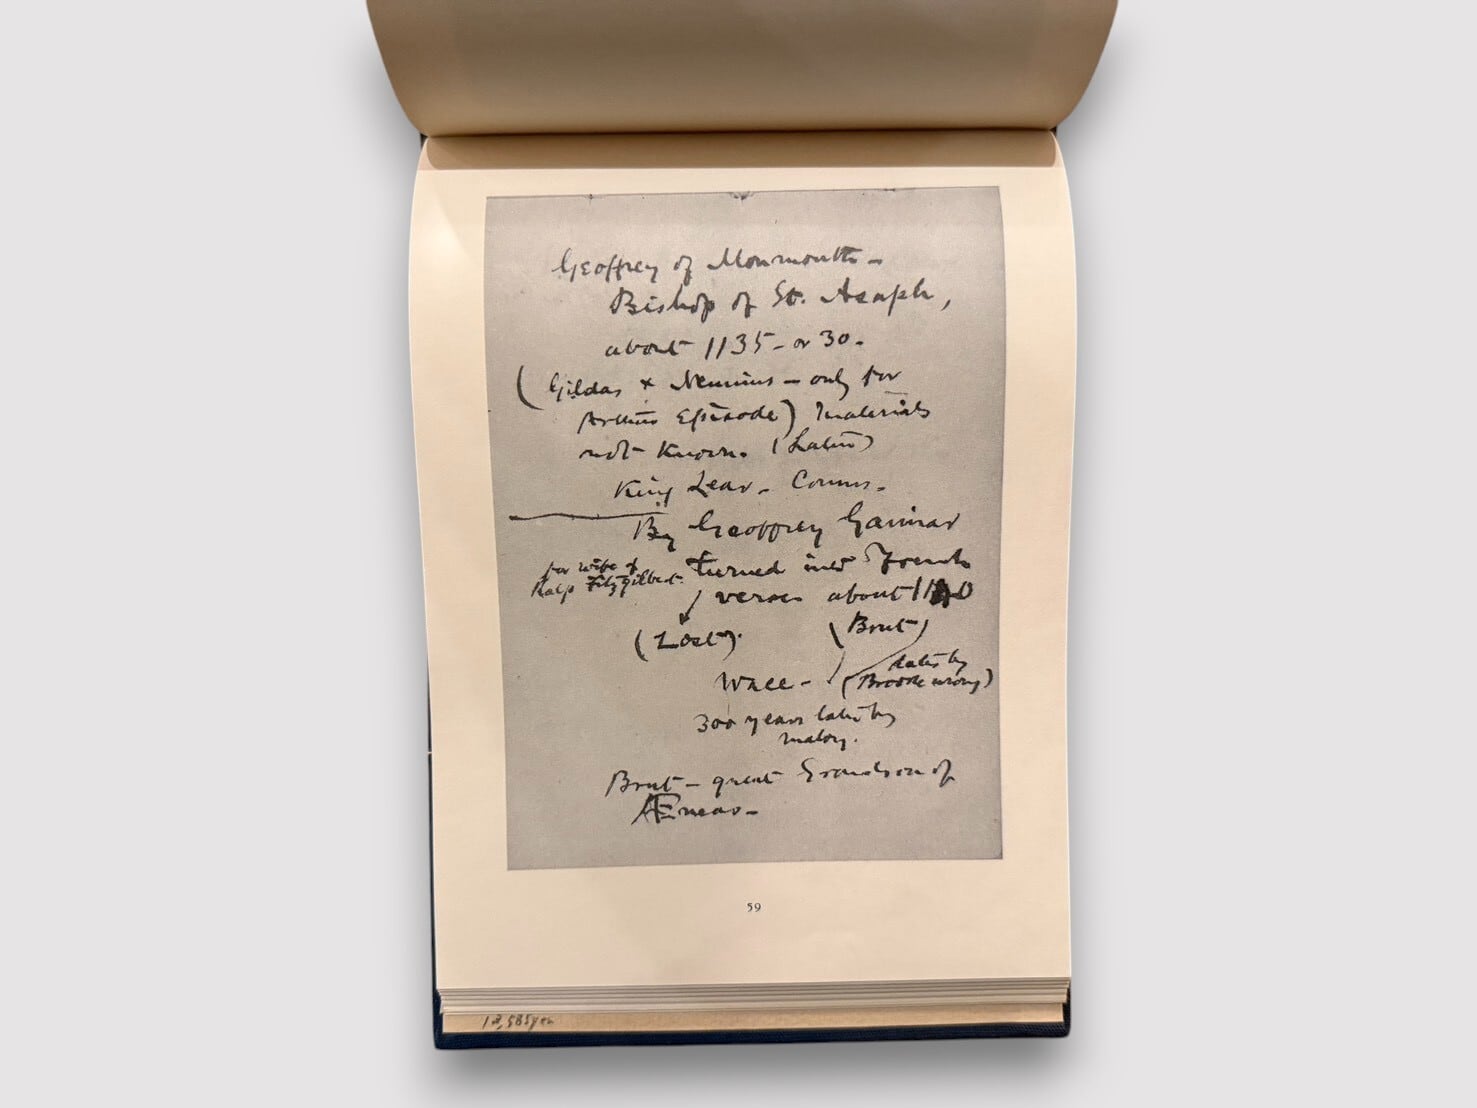 Geoffrey of Monmouth -
Bishop of St. Asaph,
about 1135 - or 30 -
(Gildas & Nennius - only for
Arthur Episode) materials
not known. (Latin)
King Lear - 
By Geoffrey Gaimar
for wife of
Ralf Fitzgilbert. turned into French
verses about 1140
(Lost). (Brut)
Wace - (dates by
Brooke wrong)
300 years later by
Malory.
Brut - great Grandson of
Æneas -
59